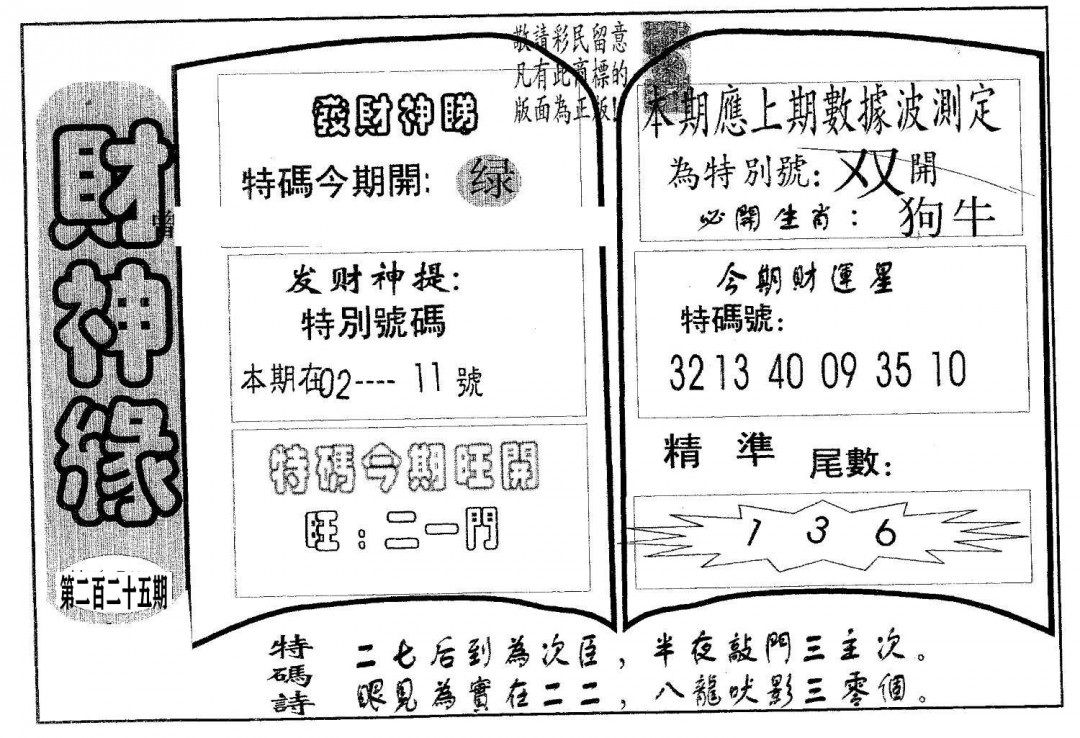 財神緣
第二百二十五期
敬請彩民留意
凡有此商標的
版面為正版!
發財神睇
特碼今期開: 绿
曾
发财神提:
特別號碼
本期在02---- 11 號
特碼今期旺開
旺:二一門
本期應上期數據波測定
為特別號: 双 開
必開生肖: 狗牛
今期財運星
特碼號:
32 13 40 09 35 10
精 準 尾數:
1 3 6
特碼詩
二七后到為次臣,半夜敲門三主次。
眼見為實在二二,八龍吠影三零個。